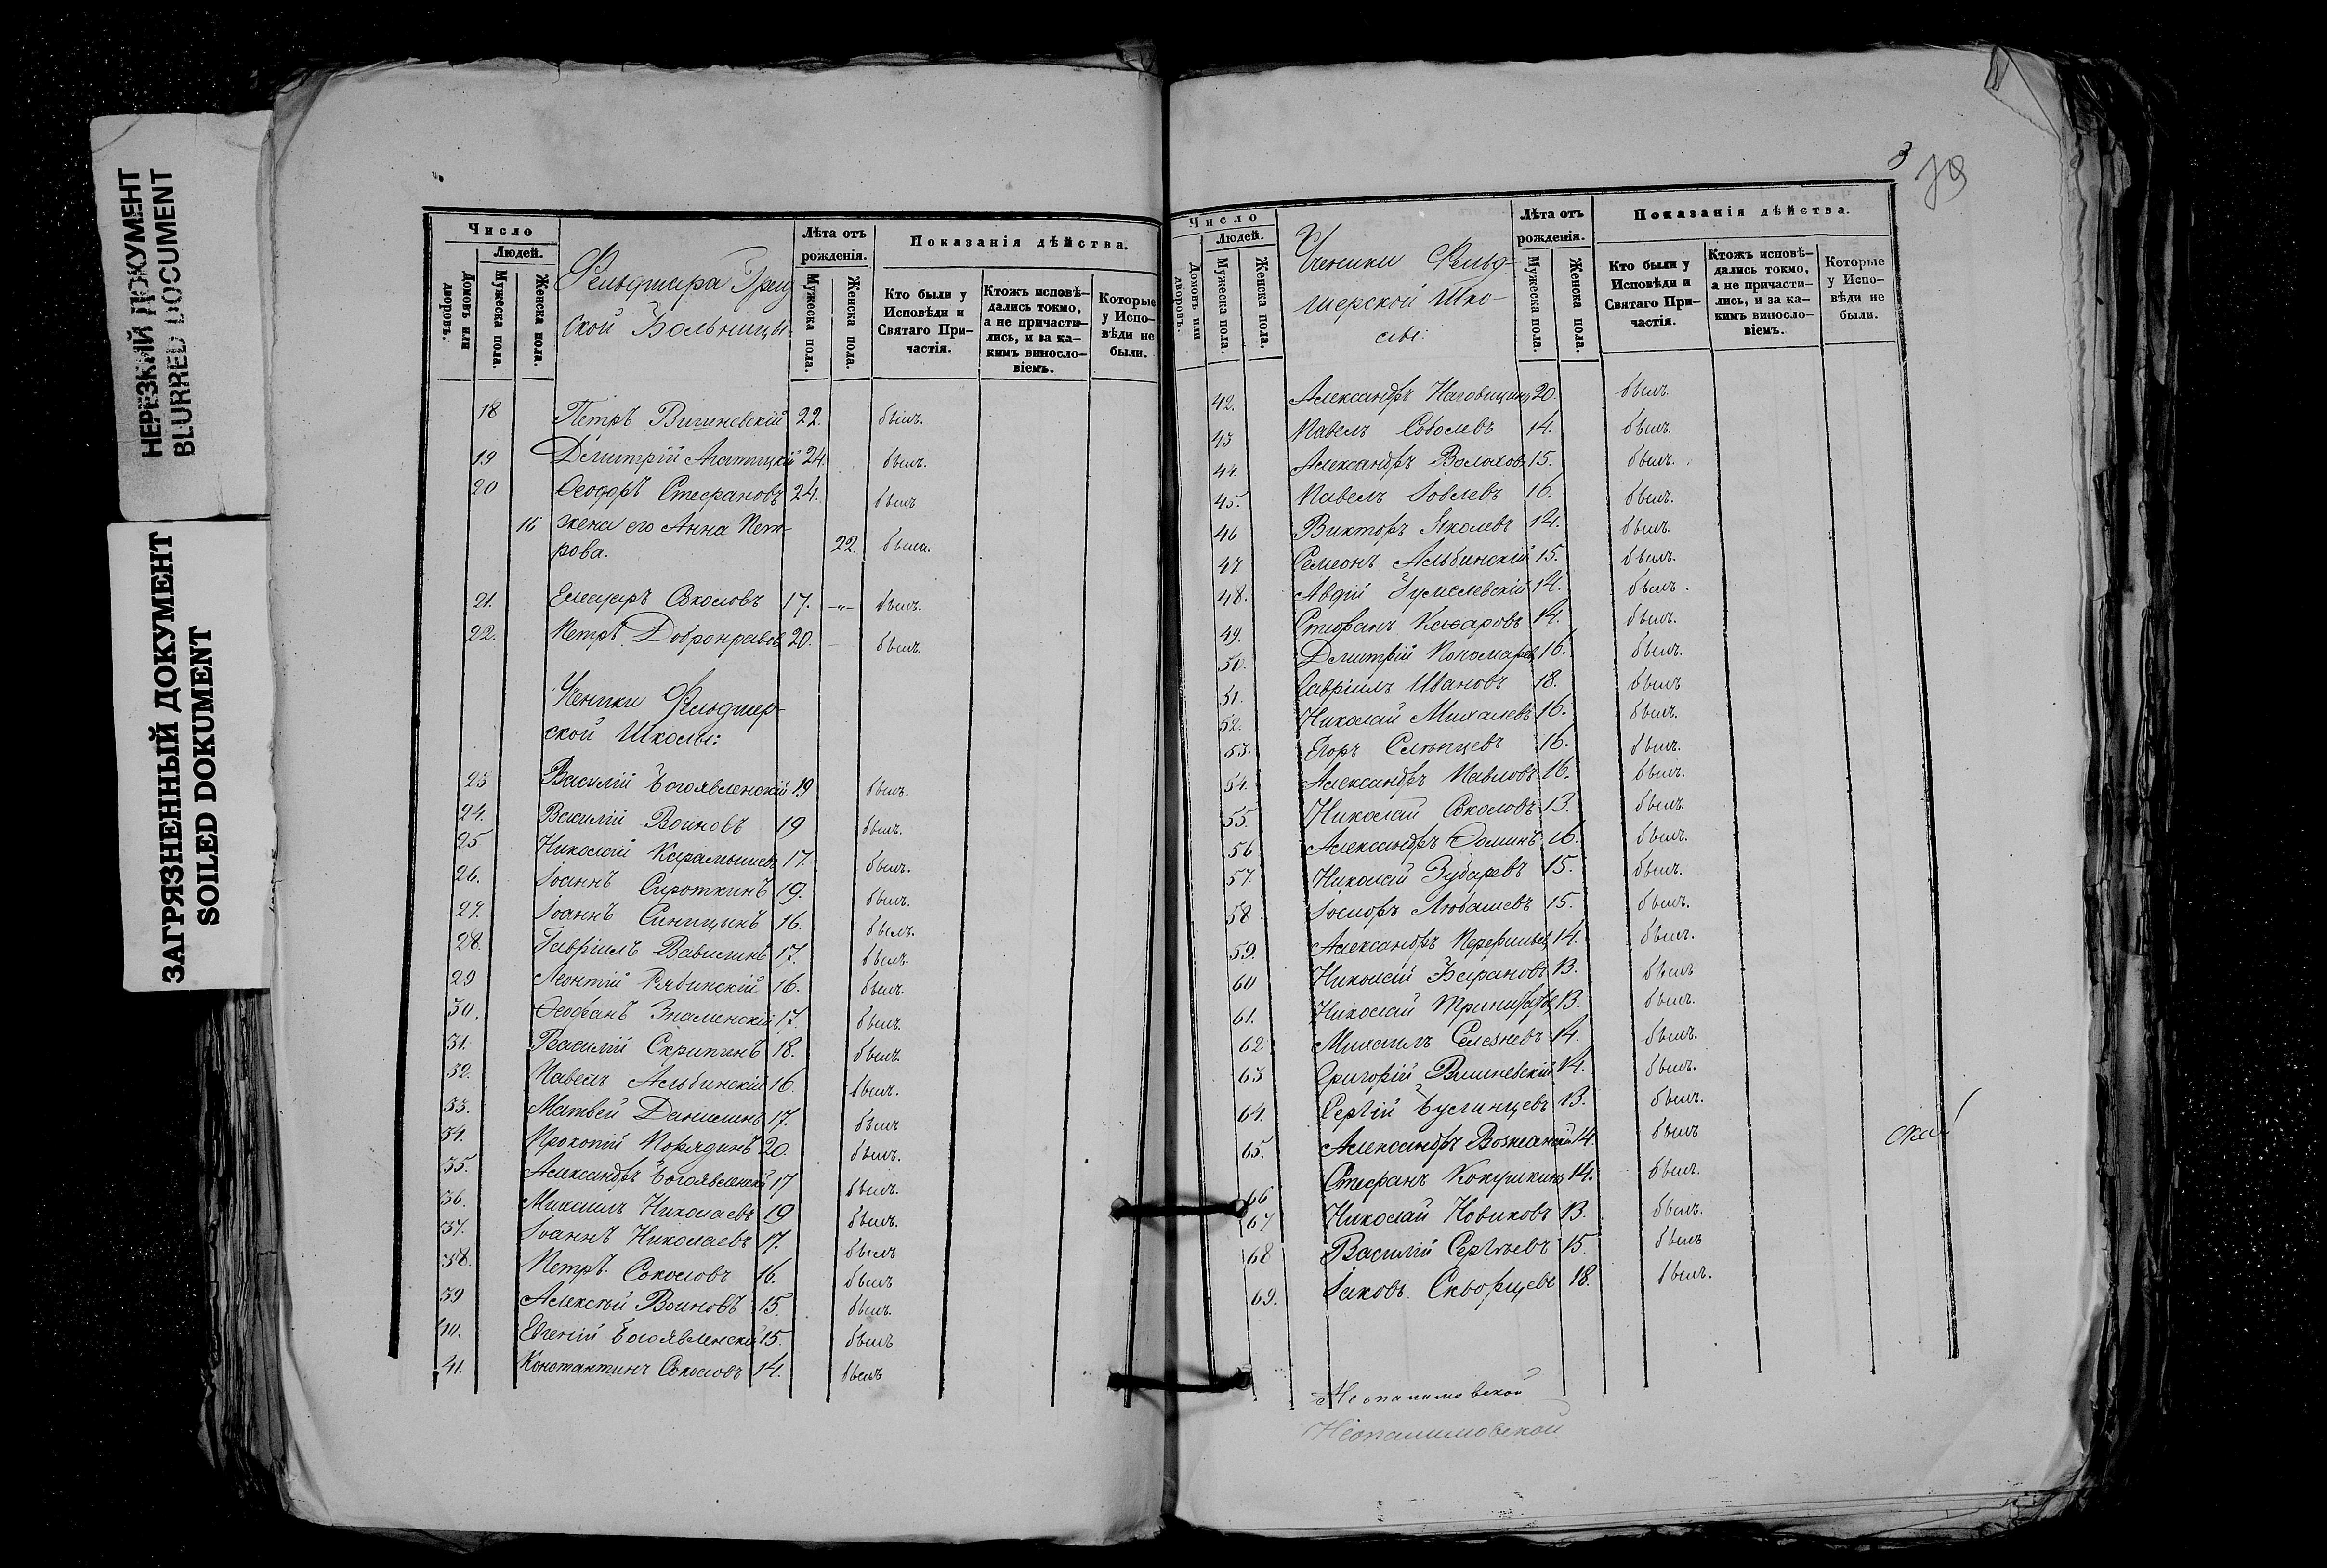 НЕРЕЗКИЙ ДОКУМЕНТ
BLURRED DOCUMENT
ЗАГРЯЗНЕННЫЙ ДОКУМЕНТ
SOILED DOKUMENT
Число
Людей.
Домовъ или дворовъ.
Мужеска пола.
Женска пола.
Фельдшера Град
ской Больницы
Лѣта отъ
рожденія.
Мужеска пола.
Женска пола.
Показанія дѣйства.
Кто были у
Исповѣди и
Святаго При-
частія.
Ктожъ исповѣ-
дались токмо,
а не причасти-
лись, и за ка-
кимъ виносло-
віемъ.
Которые
у Испо-
вѣди не
были.
18 Петръ 22. былъ.
19 Дмитрій 24. былъ.
20 Ѳеодоръ Стефановъ 24. былъ
16 жена его Анна Пет-
рова. 22. была.
21. Елеазаръ Соколовъ 17. былъ.
22. Петръ Добронравовъ 20. былъ.
Ученики Фельдшер-
ской Школы:
23 Василій Богоявленскій 19 былъ.
24. Василій Воиновъ 19 былъ.
25 Николай Карамышевъ 17. былъ.
26. Іоаннъ Сироткинъ 19. былъ.
27. Іоаннъ Синицынъ 16. былъ.
28. Гавріилъ Вавилинъ 17. былъ.
29 Леонтій Рябинскій 16. былъ.
30. Ѳеофанъ Знаменскій 17. былъ
31. Василій Скрипинъ 18. былъ
32. Павелъ Альбинскій 16. былъ.
33. Матвей Данилинъ 17. былъ
34. Прокопій 20. былъ.
35. Александръ Богоявленскій 17 былъ.
36. Михаилъ Николаевъ 19 былъ.
37. Іоаннъ Николаевъ 17. былъ
38. Петръ Соколовъ 16. былъ
39 Алексѣй Воиновъ 15 былъ.
40. Евгеній Богоявленскій 15. былъ
41. Константинъ Соколовъ 14. былъ
3
79
Число
Людей.
Домовъ или дворовъ.
Мужеска пола.
Женска пола.
Ученики Фельд-
шерской Шко-
лы:
Лѣта отъ
рожденія.
Мужеска пола.
Женска пола.
Показанія дѣйства.
Кто были у
Исповѣди и
Святаго При-
частія.
Ктожъ исповѣ-
дались токмо,
а не причасти-
лись, и за ка-
кимъ винослo-
віемъ.
Которые
у Испо-
вѣди не
были.
42. Александръ Наговицинъ 20. былъ.
43 Павелъ Соболевъ 14. былъ.
44 Александръ Волоховъ 15. былъ.
45. Павелъ Іовлевъ 16. былъ.
46 Викторъ Яколевъ 14. былъ.
47 Семеонъ Альбинскій 15. былъ.
48. Авдій 14. былъ.
49. Стефанъ 14. былъ.
50. Дмитрій Пономаревъ 16. былъ.
51. Гавріилъ Ивановъ 18. былъ
52. Николай Михалевъ 16. былъ.
53. Егоръ Слѣпцевъ 16. былъ.
54. Александръ Павловъ 16. былъ.
55. Николай Соколовъ 13. былъ
56 Александръ Ѳоминъ 16. былъ.
57. Николай Зубаревъ 15. былъ.
58 Іосифъ Любашевъ 15. былъ.
59. Александръ 14. былъ.
60 Николай Барановъ 13. былъ
61. Николай 13. былъ.
62 Михаилъ Селезневъ 14. былъ.
63 Григорій Вишневскій 14. былъ.
64. Сергій 13. былъ.
65. Александръ 14. былъ
66 Стефанъ Кокушкинъ 14. былъ.
67 Николай Новиковъ 13. былъ.
68 Василій Сергѣевъ 15. былъ
69. Іаковъ Скворцевъ 18. былъ.
ской
Неопалимовской
Неопалимовской